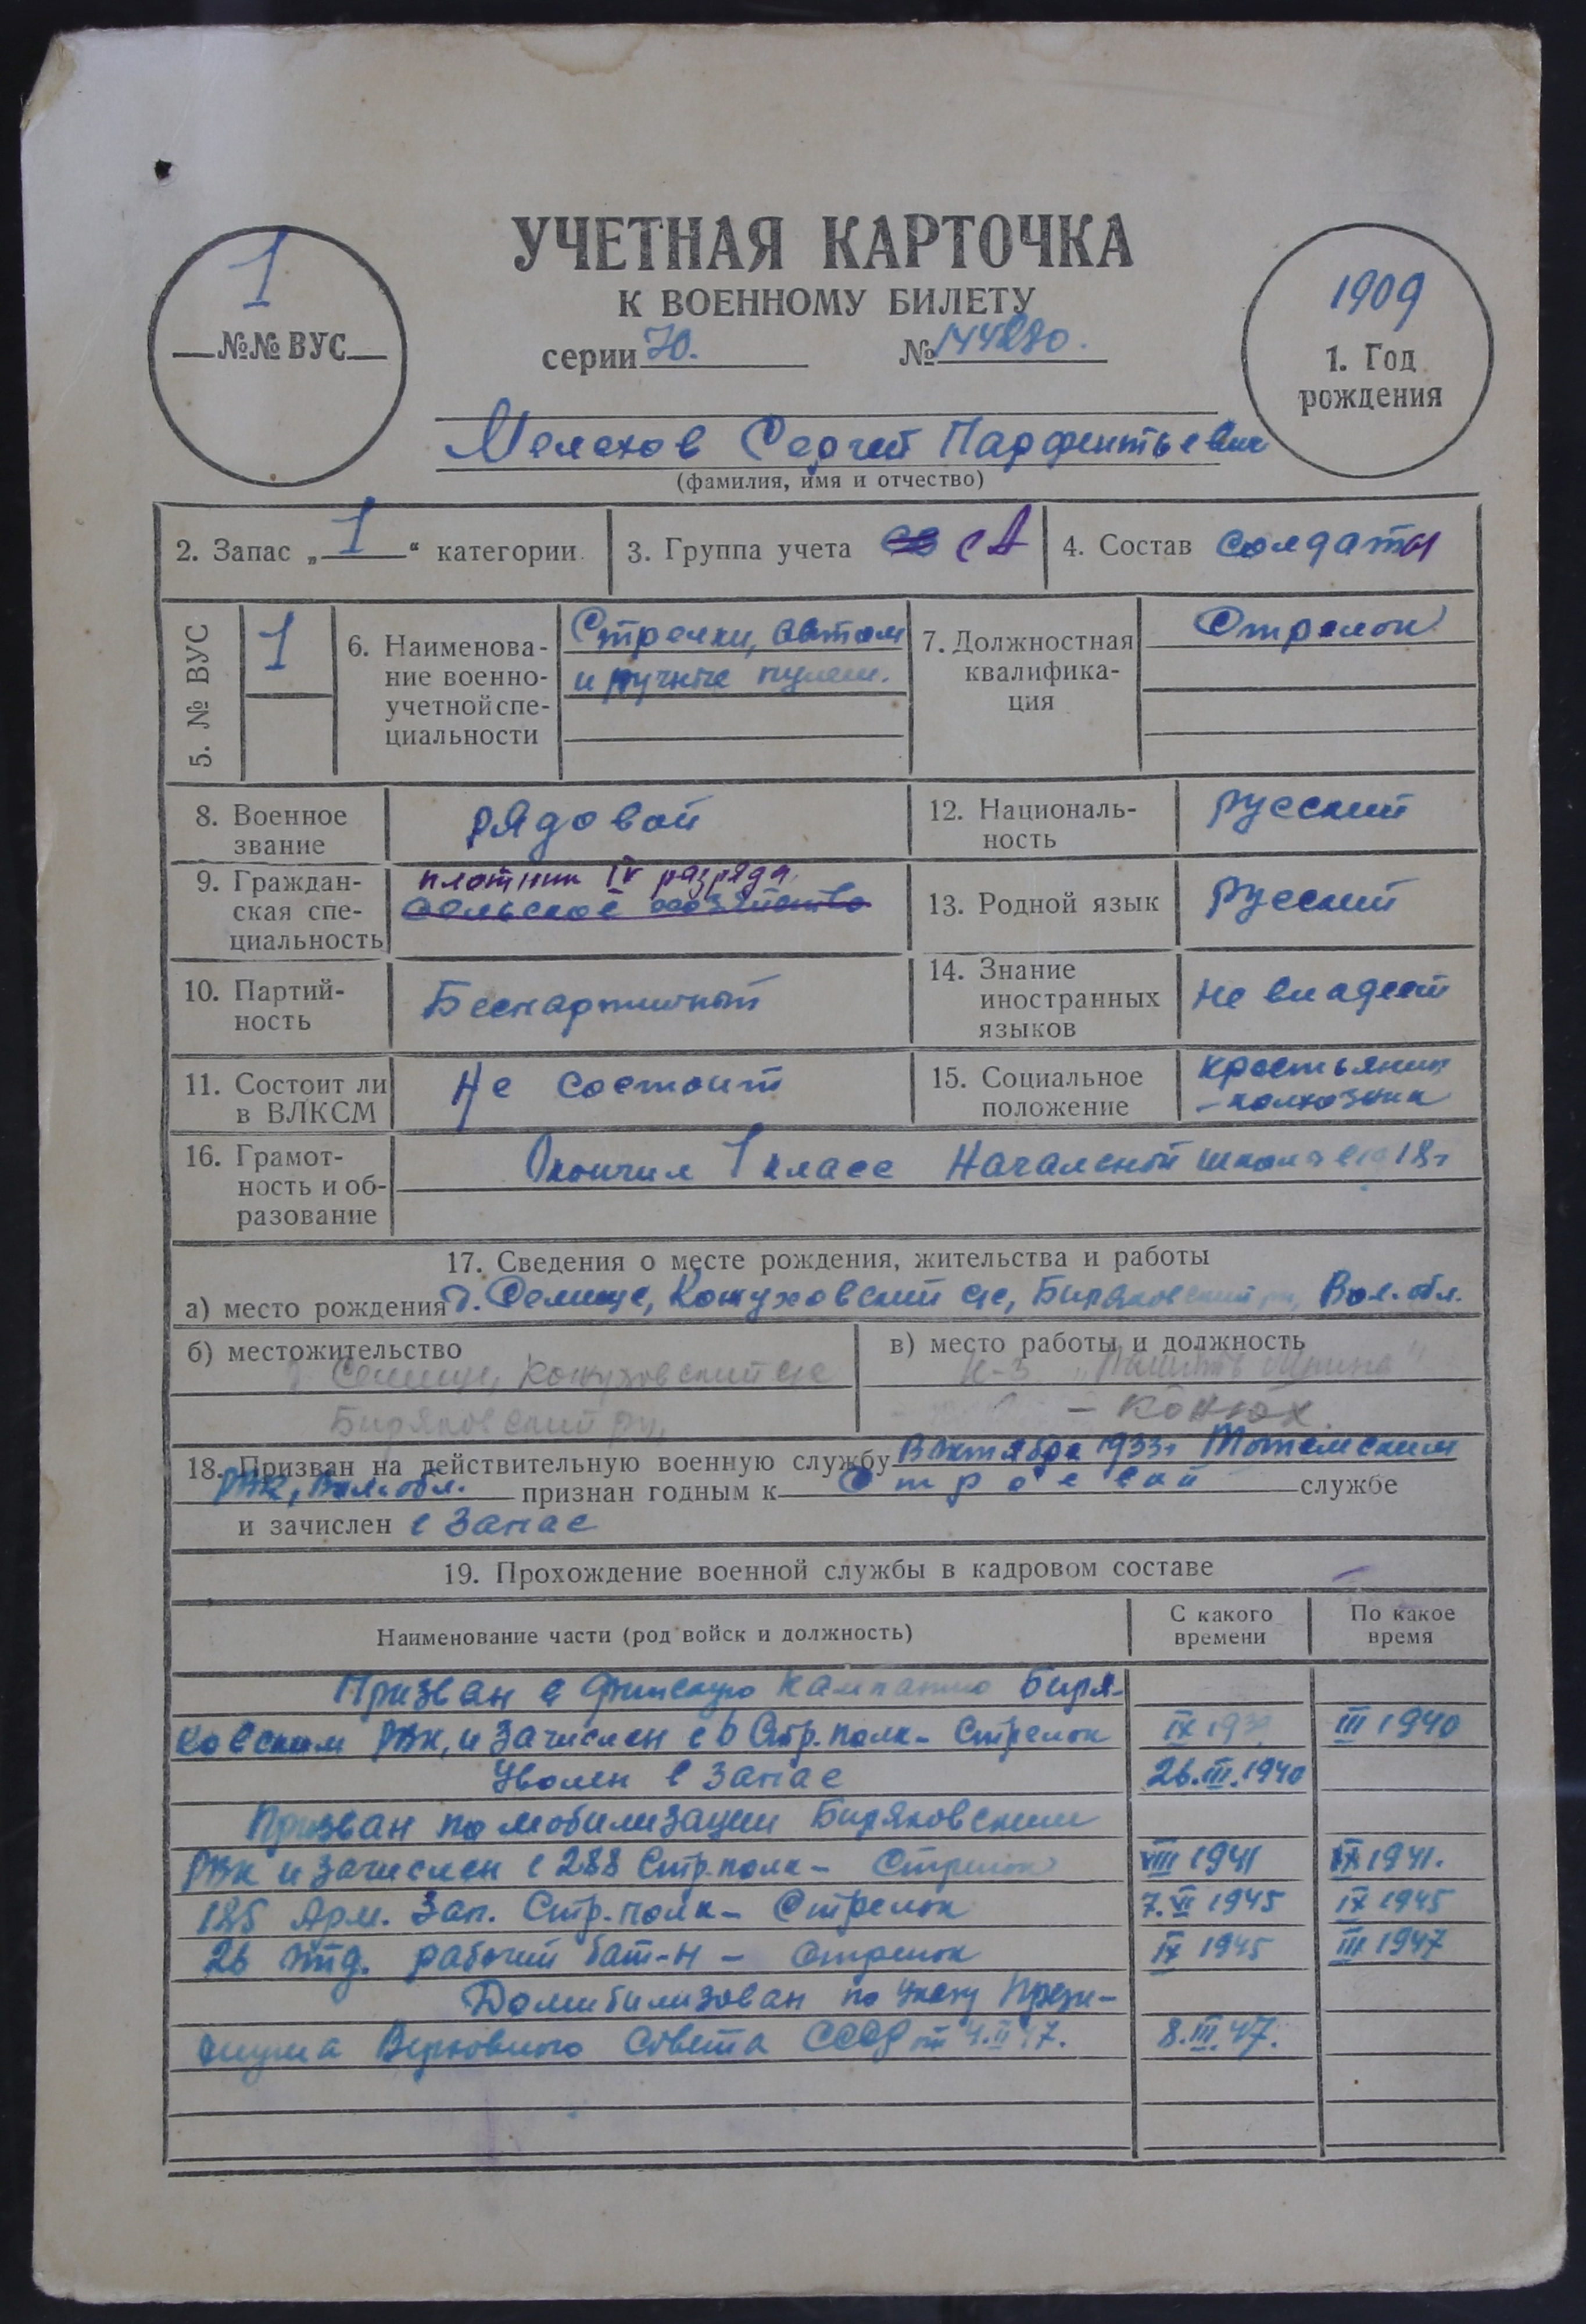 УЧЕТНАЯ КАРТОЧКА
К ВОЕННОМУ БИЛЕТУ
серии 70. №
1
№№ ВУС
1909
1. Год
рождения
Мелехов Сергей Парфентьевич
(фамилия, имя и отчество)
2. Запас „ 1 “ категории
3. Группа учета СА
4. Состав солдаты
5. № ВУС 1
6. Наименова-
ние военно-
учетной спе-
циальности
Стрелки, автом
и ручные пулем.
7. Должностная
квалифика-
ция
Стрелок
8. Военное
звание
рядовой
12. Националь-
ность
русский
9. Граждан-
ская спе-
циальность
плотник IV разряда
сельское хозяйство
13. Родной язык русский
10. Партий-
ность
Беспартийный
14. Знание
иностранных
языков
не владеет
11. Состоит ли
в ВЛКСМ
Не состоит
15. Социальное
положение
крестьянин
-колхозник
16. Грамот-
ность и об-
разование
Окончил 1 класс Начальной
17. Сведения о месте рождения, жительства и работы
а) место рождения д. Селище, Кожуховский с/с, Биряковский рн, Вол. обл.
б) местожительство
Селище, Кожуховский с/с
Биряковский рн,
в) место работы и должность
к-з
- конюх.
18. Призван на действительную военную службу В Октябре 1933г Тотемским
РВК, Вол. обл. признан годным к Строевой службе
и зачислен в запас
19. Прохождение военной службы в кадровом составе
Наименование части (род войск и должность)
С какого
времени
По какое
время
Призван в финскую кампанию Биря-
ковским РВК, и зачислен в 6 Стр. полк - Стрелок IX 1939 III 1940
Уволен в запас 26.III.1940
Призван по мобилизации Биряковским
РВК и зачислен в 288 Стр. полк - Стрелок VIII 1941 IX 1941.
185 Арм. Зап. Стр. полк - Стрелок 7.VI 1945 IX 1945
26 отд. рабочий бат-н - Стрелок IX 1945 III 1947
Демобилизован по Указу Прези-
диума Верховного Совета СССР от 4.II 47. 8.III.47.